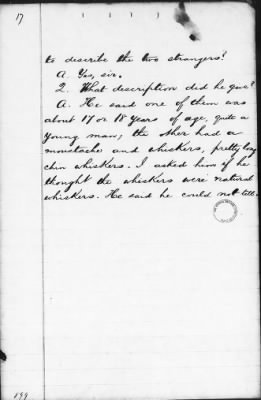 17
to describe the two strangers?
A. Yes, sir.
Q. What description did he give?
A. He said one of them was
about 17 or 18 years of age, quite a
young man; the other had a
moustache and whiskers, pretty long
chin whiskers. I asked him if he
thought the whiskers were natural
whiskers. He said he could not tell.